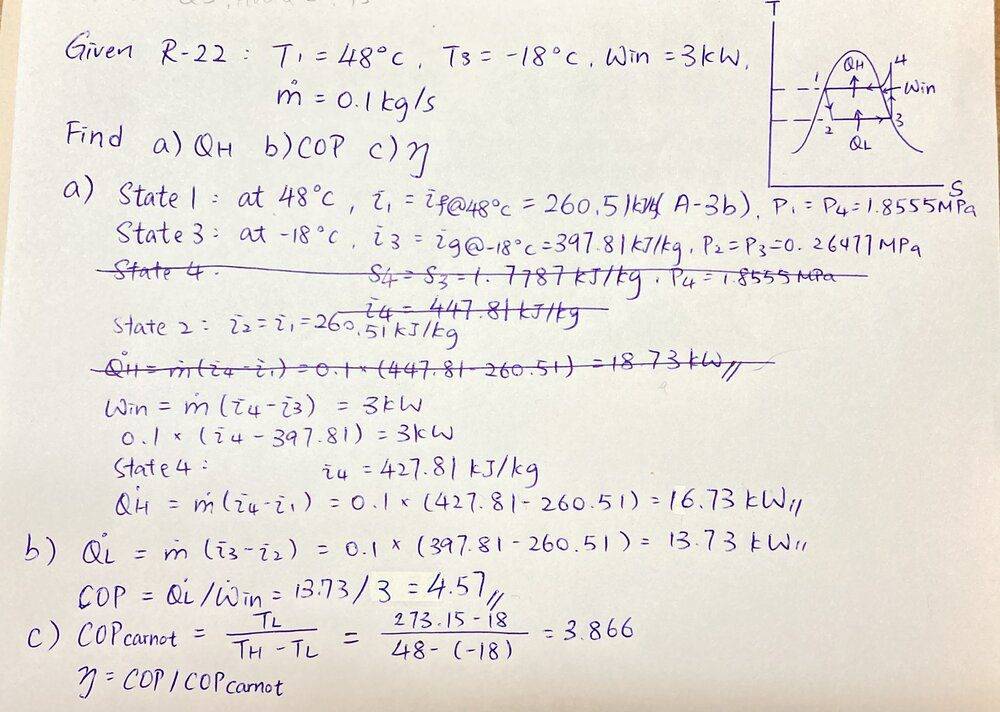 Given R-22 : T1 = 48°C, T3 = -18°C, Win = 3kW,
ṁ = 0.1 kg/s
Find a) QH b) COP c) η
T
1
QH
4
Win
2
QL
3
S
a) State 1 : at 48°C, i1 = if@48°C = 260.51 kJ/kg (A-3b), P1 = P4 = 1.8555MPa
State 3 : at -18°C, i3 = ig@-18°C = 397.81 kJ/kg, P2 = P3 = 0.26477 MPa
State 4. S4 = S3 = 1.7787 kJ/kg, P4 = 1.8555 MPa
i4 = 447.81 kJ/kg
State 2 : i2 = i1 = 260.51 kJ/kg
Q̇H = ṁ(i4-i1) = 0.1 × (447.81-260.51) = 18.73 kW //
Win = ṁ (i4-i3) = 3kW
0.1 × (i4 - 397.81) = 3kW
State 4 : i4 = 427.81 kJ/kg
Q̇H = ṁ(i4-i1) = 0.1 × (427.81-260.51) = 16.73 kW //
b) Q̇L = ṁ (i3-i2) = 0.1 × (397.81-260.51) = 13.73 kW //
COP = Q̇L/Ẇin = 13.73/3 = 4.57 //
c) COPcarnot = TL / (TH - TL) = (273.15-18) / (48-(-18)) = 3.866
η = COP/COPcarnot